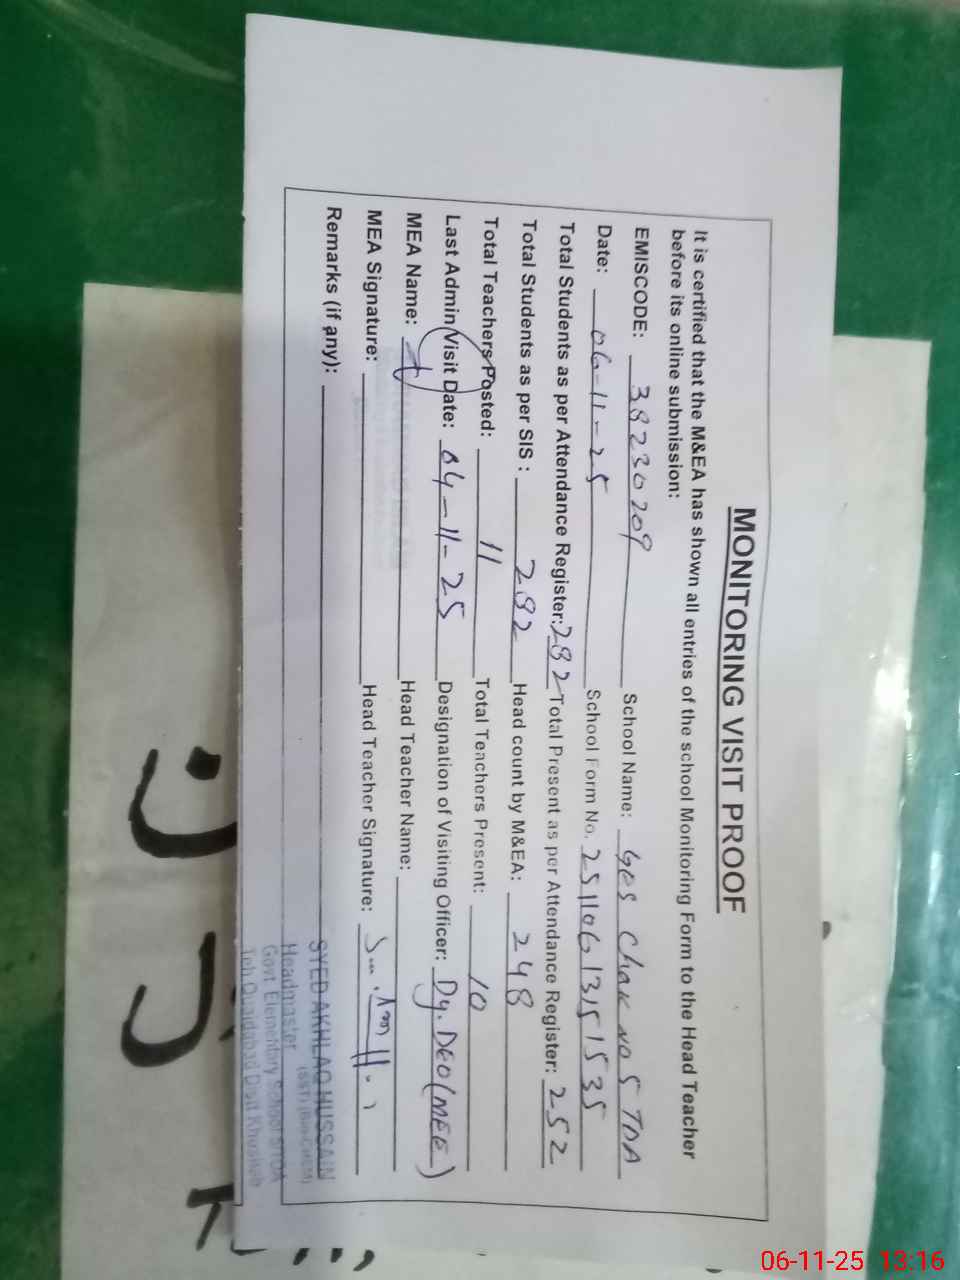 MONITORING VISIT PROOF
It is certified that the M&EA has shown all entries of the school Monitoring Form to the Head Teacher
before its online submission:
EMISCODE: 38230209 School Name: GES Chak NO 5 TDA
Date: 06-11-25 School Form No. 25110613151535
Total Students as per Attendance Register: 282 Total Present as per Attendance Register: 252
Total Students as per SIS : 282 Head count by M&EA: 248
Total Teachers Posted: 11 Total Teachers Present: 10
Last Admin Visit Date: 04-11-25 Designation of Visiting Officer: Dy. DEO (MEE)
MEA Name: Head Teacher Name:
MEA Signature: Head Teacher Signature:
Remarks (if any):
SYED AKHLAQ HUSSAIN
Headmaster (SST) (Bio-Chem)
Govt Elementary School 5/TDA
Teh Quaidabad Distt Khushab
06-11-25 13:16